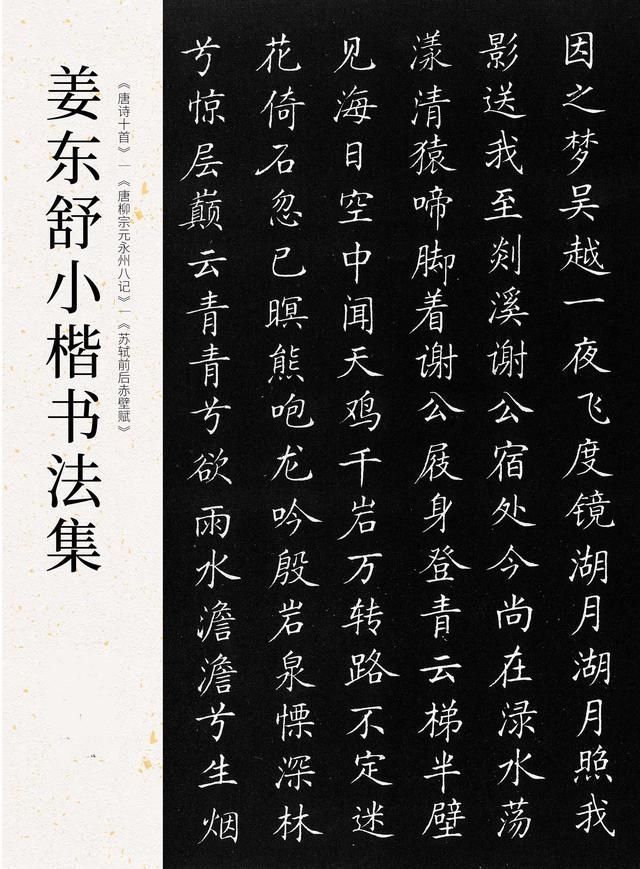 因之梦吴越一夜飞度镜湖月湖月照我
影送我至剡溪谢公宿处今尚在渌水荡
漾清猿啼脚着谢公屐身登青云梯半壁
见海日空中闻天鸡千岩万转路不定迷
花倚石忽已暝熊咆龙吟殷岩泉慄深林
兮惊层巅云青青兮欲雨水澹澹兮生烟
《唐诗十首》—《唐柳宗元永州八记》—《苏轼前后赤壁赋》
姜东舒小楷书法集